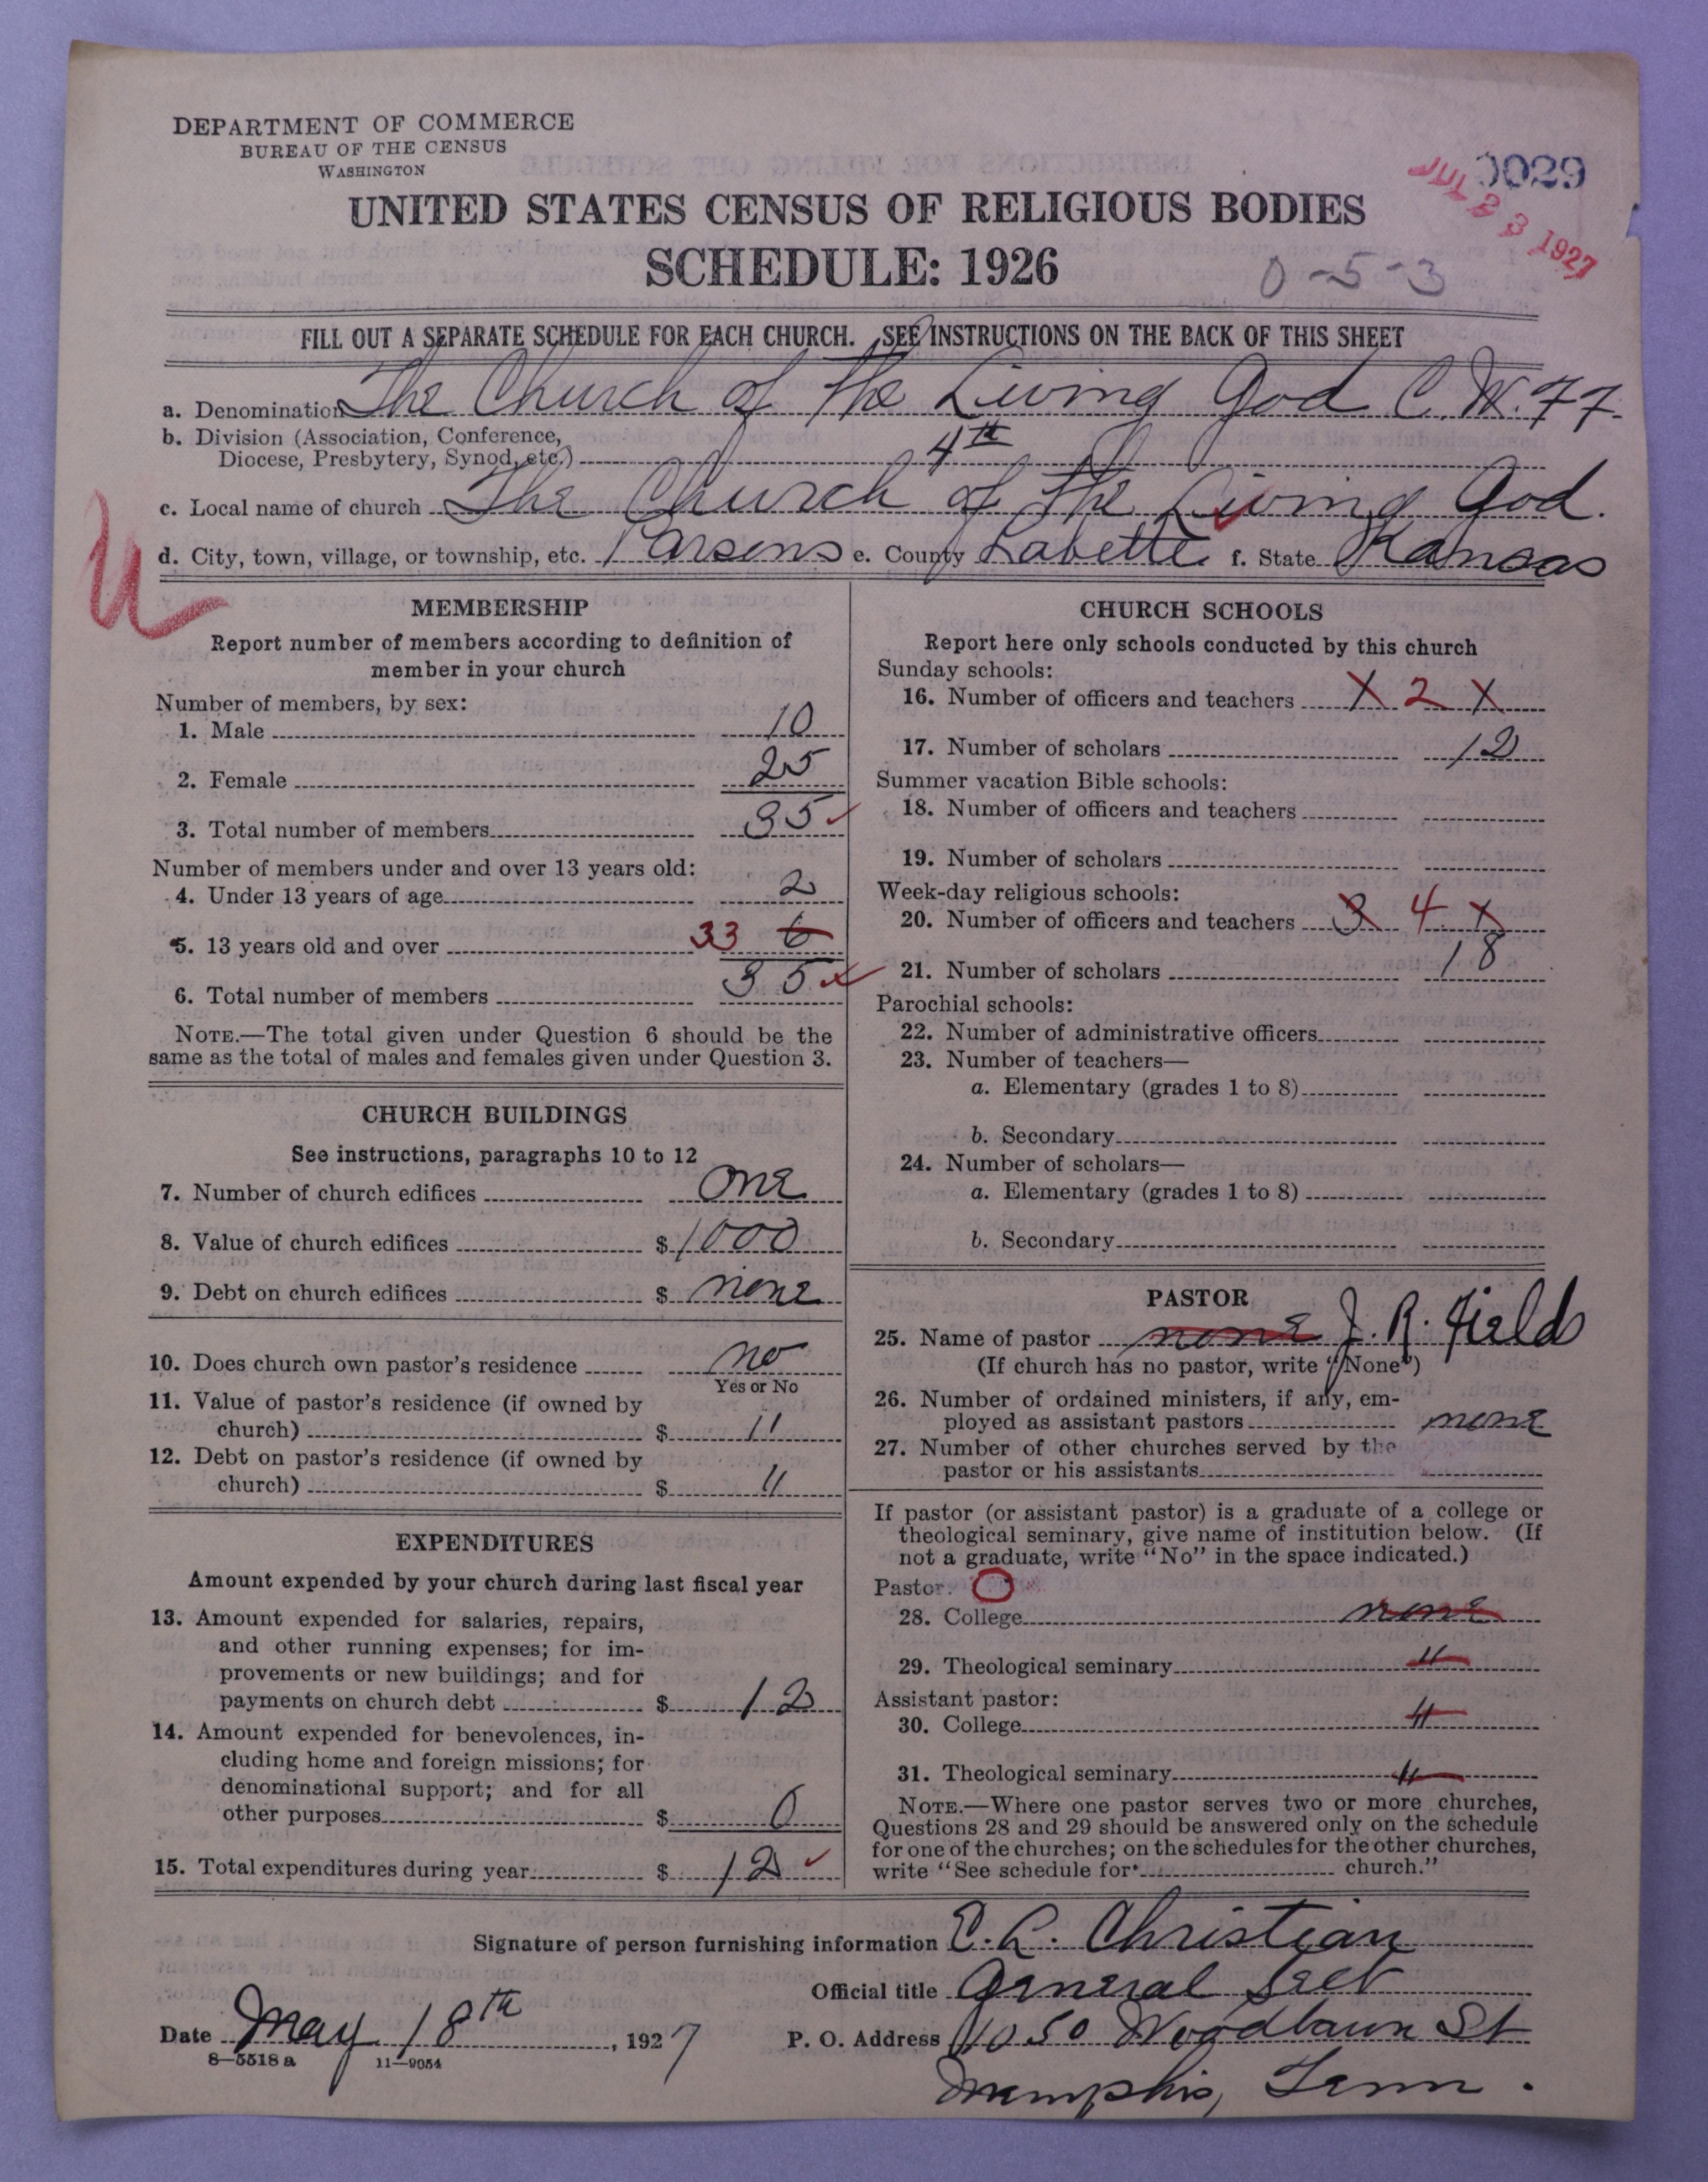 DEPARTMENT OF COMMERCE
BUREAU OF THE CENSUS
WASHINGTON
0029
JUL 23 1927
UNITED STATES CENSUS OF RELIGIOUS BODIES
SCHEDULE: 1926
0-5-3
FILL OUT A SEPARATE SCHEDULE FOR EACH CHURCH. SEE INSTRUCTIONS ON THE BACK OF THIS SHEET
a. Denomination The Church of the Living God C. W. F. F.
b. Division (Association, Conference,
Diocese, Presbytery, Synod, etc.) 4th
c. Local name of church The Church of the Living God.
d. City, town, village, or township, etc. Parsons e. County Labette f. State Kansas
U
MEMBERSHIP
Report number of members according to definition of
member in your church
Number of members, by sex:
1. Male 10
2. Female 25
3. Total number of members 35
Number of members under and over 13 years old:
4. Under 13 years of age 2
5. 13 years old and over 33 6
6. Total number of members 35
NOTE.—The total given under Question 6 should be the
same as the total of males and females given under Question 3.
CHURCH BUILDINGS
See instructions, paragraphs 10 to 12
7. Number of church edifices one
8. Value of church edifices $ 1000
9. Debt on church edifices $ none
10. Does church own pastor's residence no
Yes or No
11. Value of pastor's residence (if owned by
church) $ "
12. Debt on pastor's residence (if owned by
church) $ "
EXPENDITURES
Amount expended by your church during last fiscal year
13. Amount expended for salaries, repairs,
and other running expenses; for im-
provements or new buildings; and for
payments on church debt $ 12
14. Amount expended for benevolences, in-
cluding home and foreign missions; for
denominational support; and for all
other purposes $ 0
15. Total expenditures during year $ 12
CHURCH SCHOOLS
Report here only schools conducted by this church
Sunday schools:
16. Number of officers and teachers 1 2 1
17. Number of scholars 12
Summer vacation Bible schools:
18. Number of officers and teachers
19. Number of scholars
Week-day religious schools:
20. Number of officers and teachers 3 4 1
21. Number of scholars 18
Parochial schools:
22. Number of administrative officers
23. Number of teachers—
a. Elementary (grades 1 to 8)
b. Secondary
24. Number of scholars—
a. Elementary (grades 1 to 8)
b. Secondary
PASTOR
25. Name of pastor none J. R. Fields
(If church has no pastor, write "None")
26. Number of ordained ministers, if any, em-
ployed as assistant pastors none
27. Number of other churches served by the
pastor or his assistants
If pastor (or assistant pastor) is a graduate of a college or
theological seminary, give name of institution below. (If
not a graduate, write "No" in the space indicated.)
Pastor: O
28. College none
29. Theological seminary "
Assistant pastor:
30. College "
31. Theological seminary "
NOTE.—Where one pastor serves two or more churches,
Questions 28 and 29 should be answered only on the schedule
for one of the churches; on the schedules for the other churches,
write "See schedule for church."
Signature of person furnishing information C. L. Christian
Official title General Sect
Date May 18th, 1927
P. O. Address 1050 Woodlawn St
Memphis, Tenn.
8—5518 a 11—9054